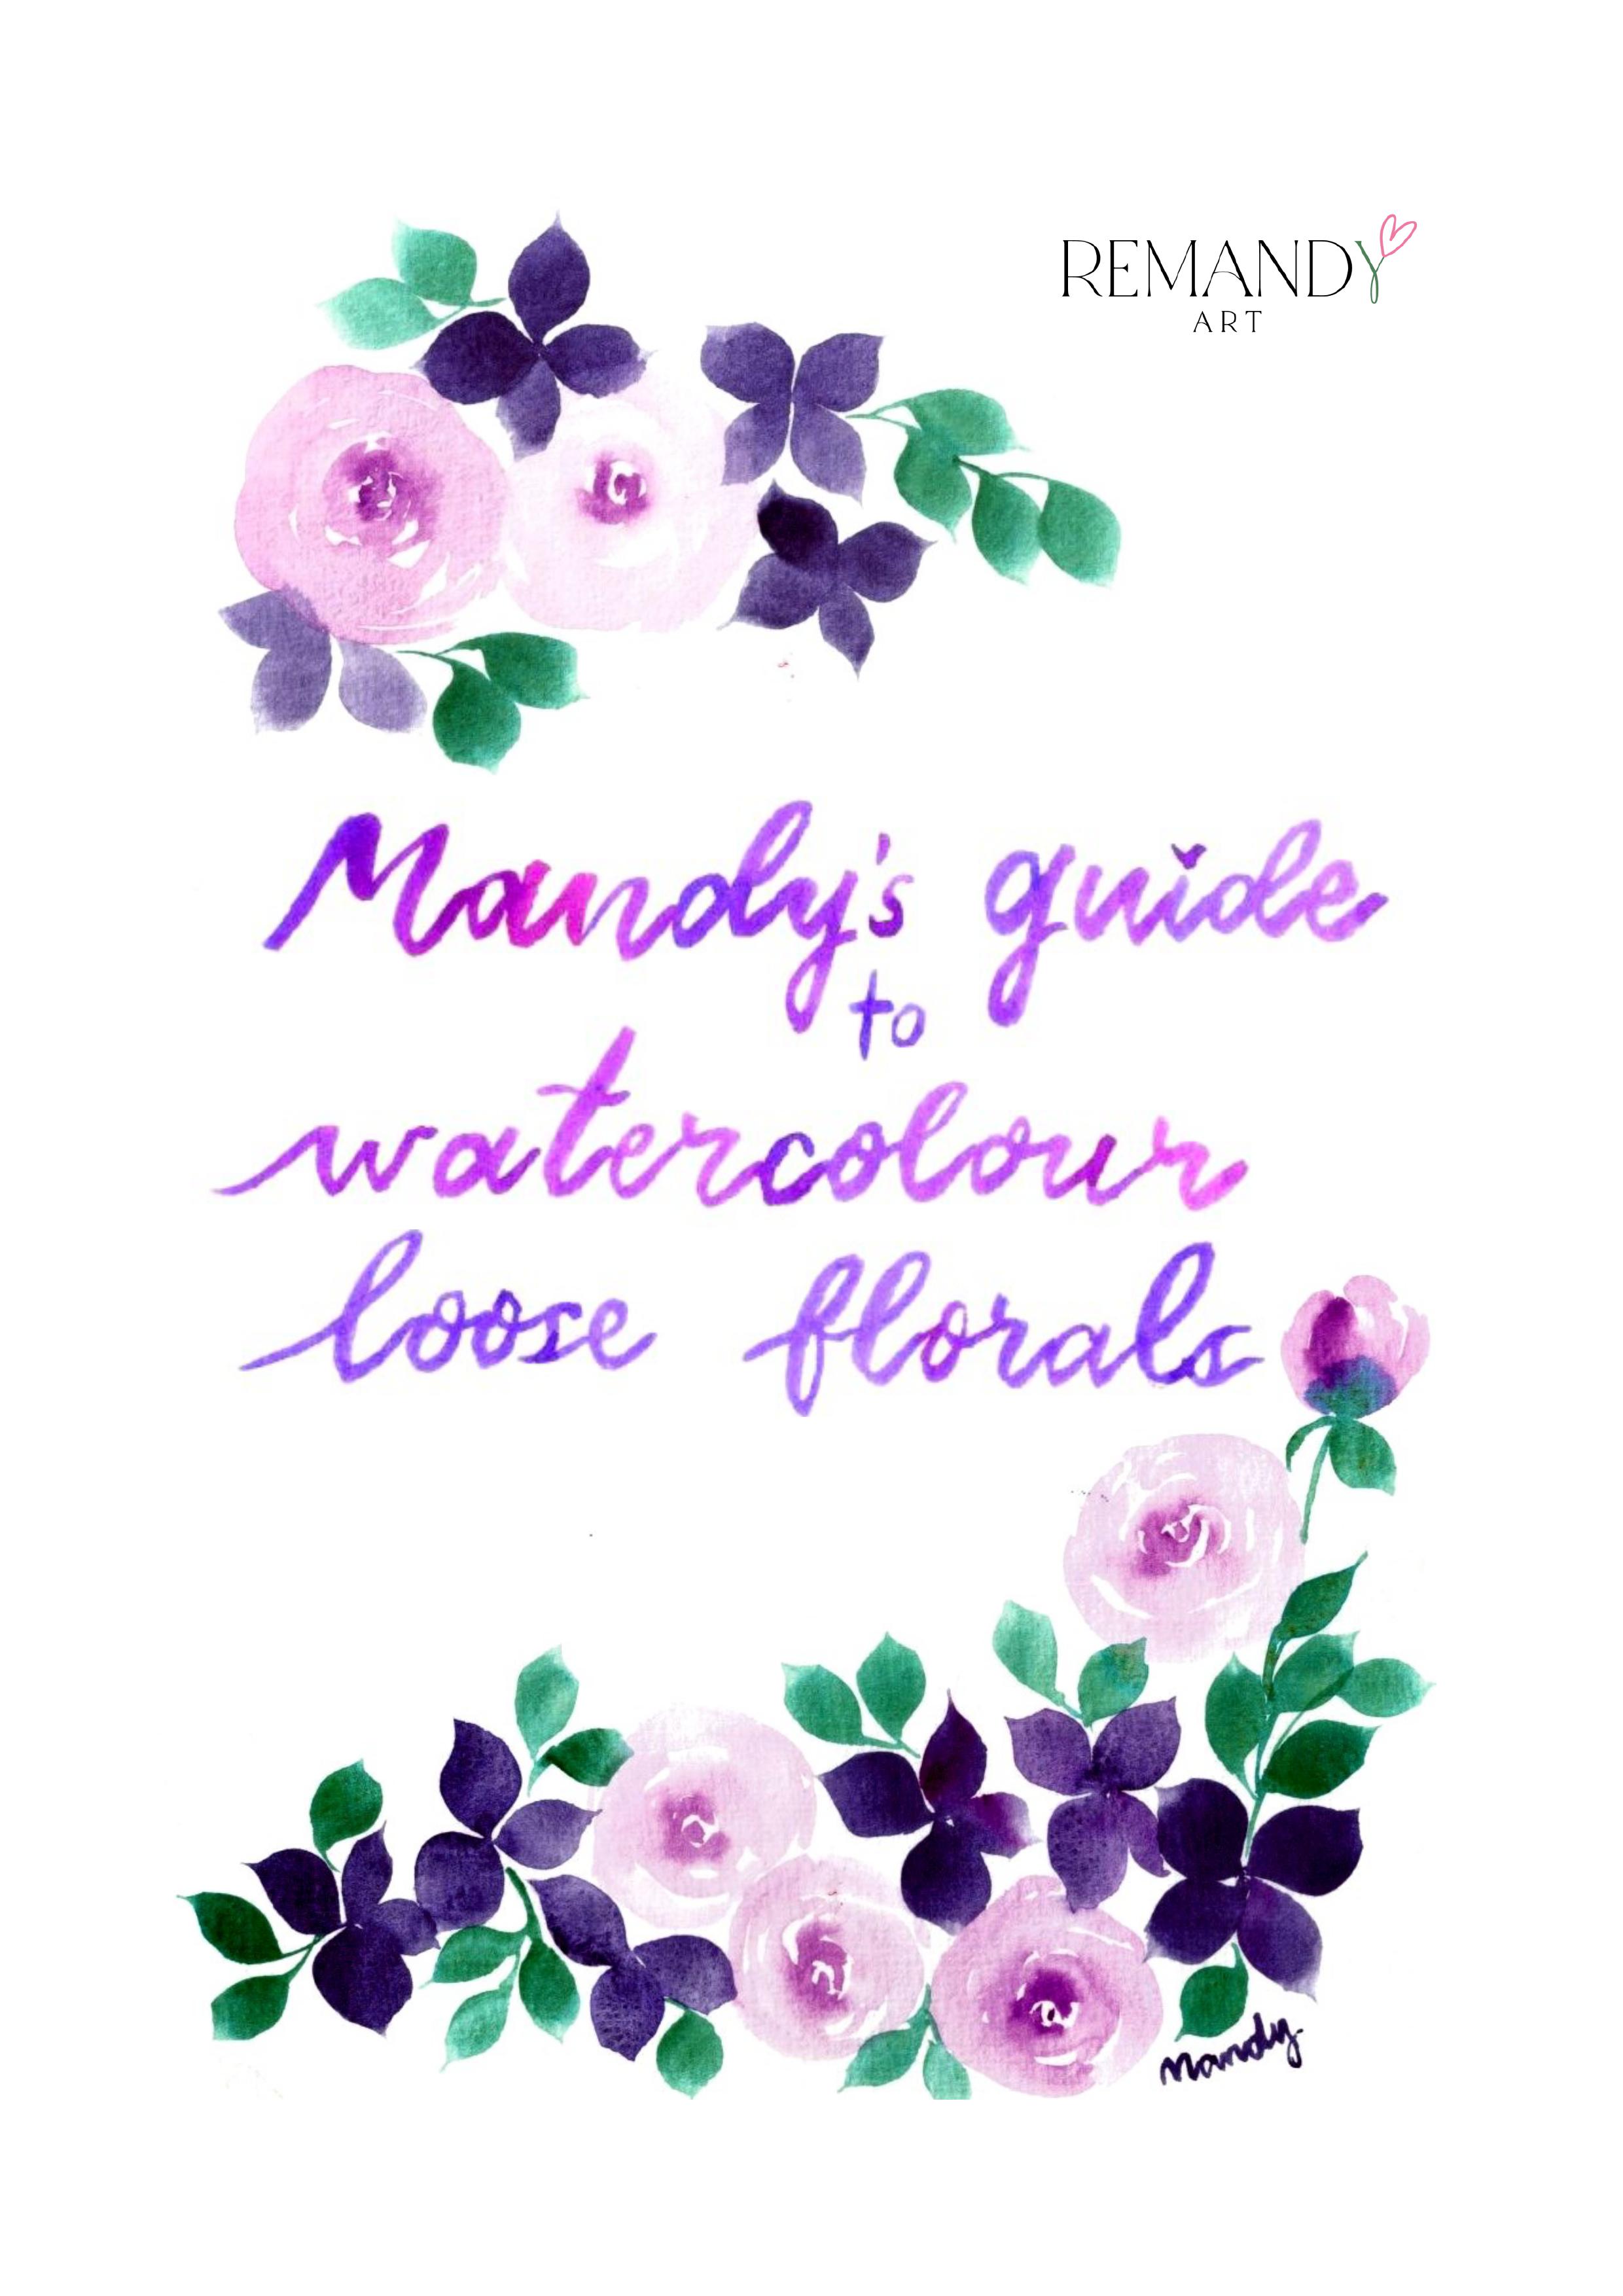 REMANDY
ART
Mandy's guide
to
watercolour
loose florals
Mandy